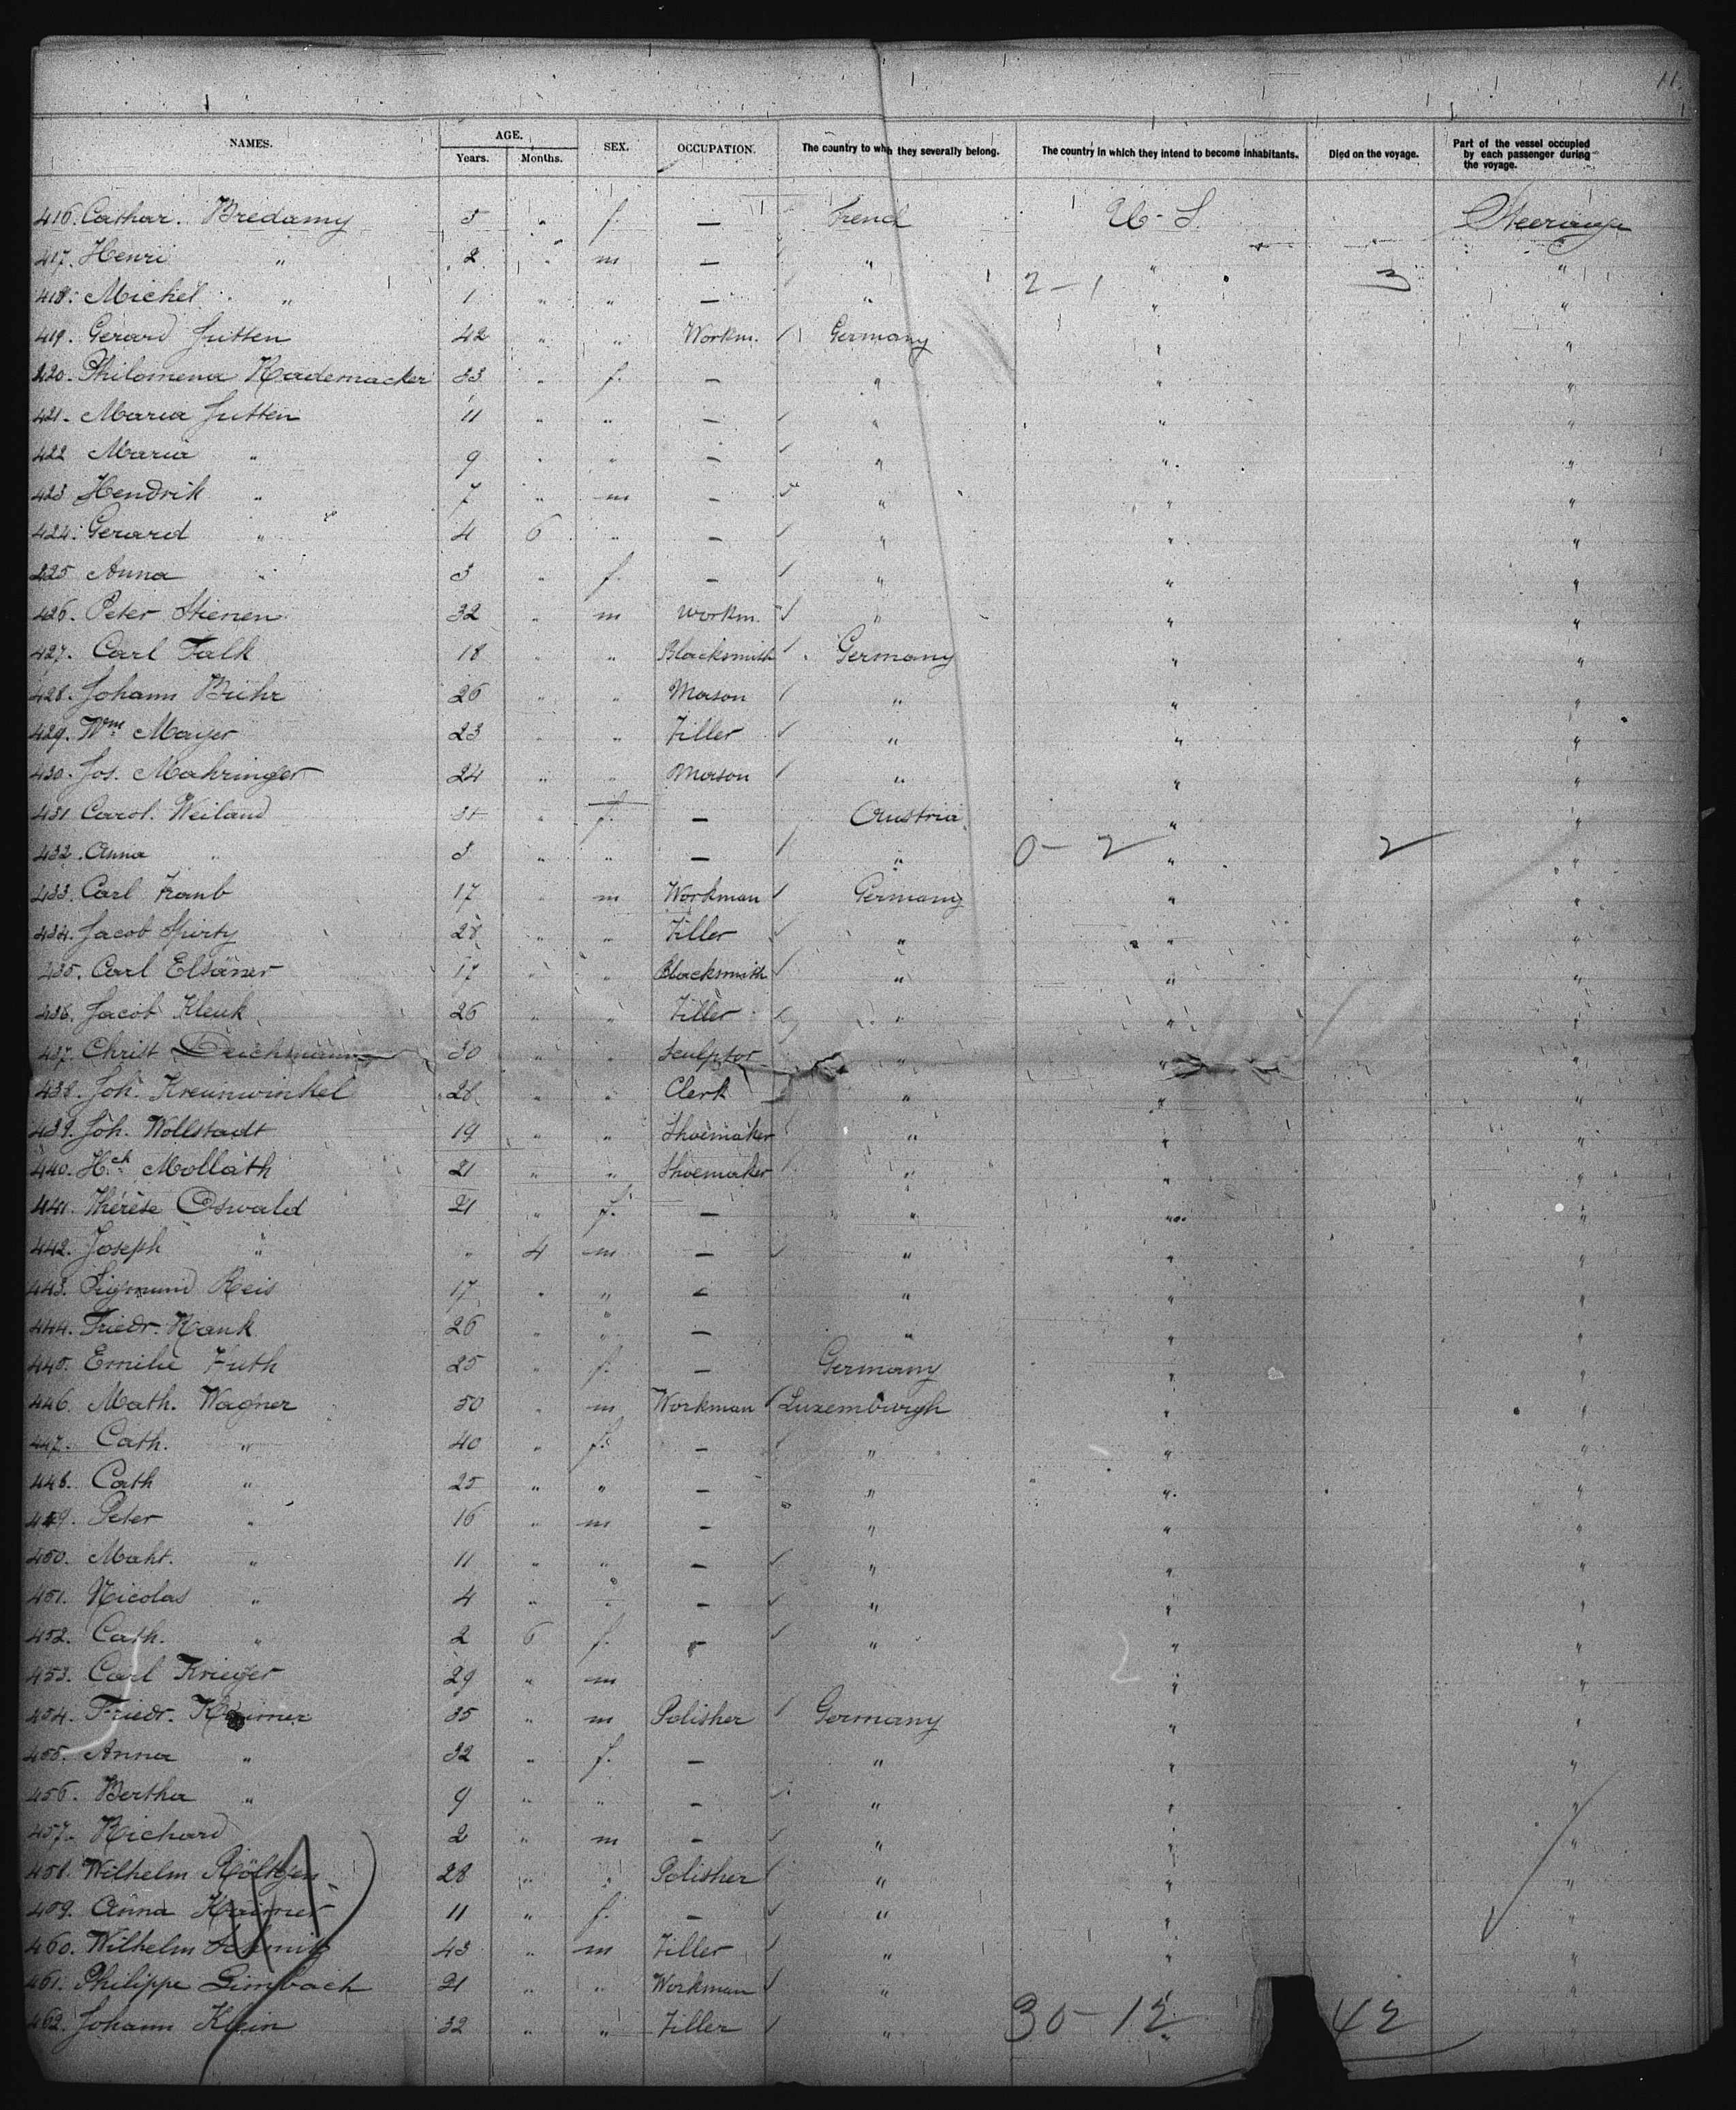 11.
NAMES. AGE. Years. Months. SEX. OCCUPATION. The country to wh they severally belong. The country in which they intend to become inhabitants. Died on the voyage. Part of the vessel occupied by each passenger during the voyage.
416. Cathar. Bredamy 5 " f. — French U. S. Steerage
417. Henri " 2 " m — " " "
2 - 1 3
418. Michel " 1 " " — " " "
419. Gerard Jutten 42 " " Workm. Germany " "
420. Philomena Rademacker 33 " f. — " " "
421. Maria Jutten 11 " " — " " "
422 Maria " 9 " " — " " "
423 Hendrik " 7 " m — " " "
424. Gerard " 4 6 " — " " "
425 Anna " 3 " f. — " " "
426. Peter Stienen 32 " m workm. " " "
427. Carl Falk 18 " " Blacksmith Germany " "
428. Johann Buhr 26 " " Mason " " "
429. Wm. Mayer 23 " " Tiller " " "
430. Jos. Mahringer 24 " " Mason " " "
431 Carol. Weiland " f. — Austria " "
432. Anna " 3 " " — " 0 - 2 " 2 "
433. Carl 17 " m Workman Germany " "
434. Jacob 28 " " Tiller " " "
435. Carl Elsäner 17 " " Blacksmith " " "
436. Jacob Klenk 26 " " Tiller " " "
437. Christ Deichmann 30 " " Sculptor " " "
438. Joh. Kreunwinkel 28 " " Clerk " " "
439. Joh. Wollstadt 19 " " Shoemaker " " "
440. Hch. Mollath 21 " " Shoemaker " " "
441. Thérèse Oswald 21 " f. — " " "
442. Joseph " " 4 m — " " "
443. Sigmund Reis 17 " " — " " "
444. Friedr. Hank 26 " " — " " "
445. Emilie Huth 25 " f. — Germany " "
446. Math. Wagner 50 " m Workman Luxemburgh " "
447. Cath. " 40 " f. — " " "
448. Cath " 25 " " — " " "
449. Peter " 16 " m — " " "
450. Maht. " 11 " " — " " "
451. Nicolas " 4 " " — " " "
452. Cath. " 2 6 f. — " " "
453. Carl Krieger 29 " m " "
454. Friedr. 35 " m Polisher Germany " "
455. Anna " 32 " f. — " " "
456. Bertha " 9 " " — " " "
457. Richard 2 " m — " " "
458. Wilhelm Röltgen 28 " " Polisher " " "
459. Anna 11 " f. — " " "
460. Wilhelm Schmitz 43 " m Tiller " " "
461. Philippe Limbach 21 " " Workman " " "
462. Johann Klein 32 " " Tiller " 30 - 12 " 42 "